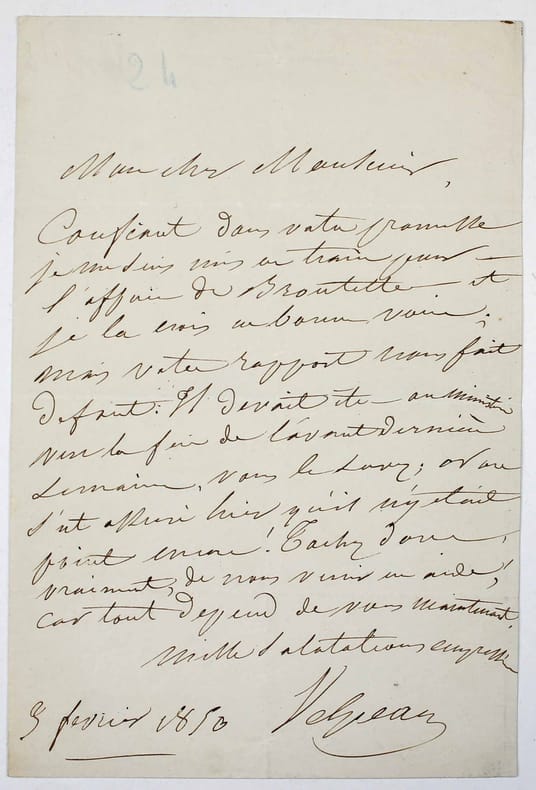 24
Mon cher Monsieur,
Confiant dans votre promesse
je me suis mis en train pour
l'affaire de Broutelle et
je la crois en bonne voie;
mais votre rapport nous fait
defaut. Il devait être au ministère
vers la fin de l'avant dernière
semaine, vous le savez; or on
s'est assuré hier qu'il n'y était
point encore! Tachez donc,
vraiment, de nous venir en aide!
car tout depend de vous maintenant.
Mille salutations empressées
Velpeau
3 février 1850